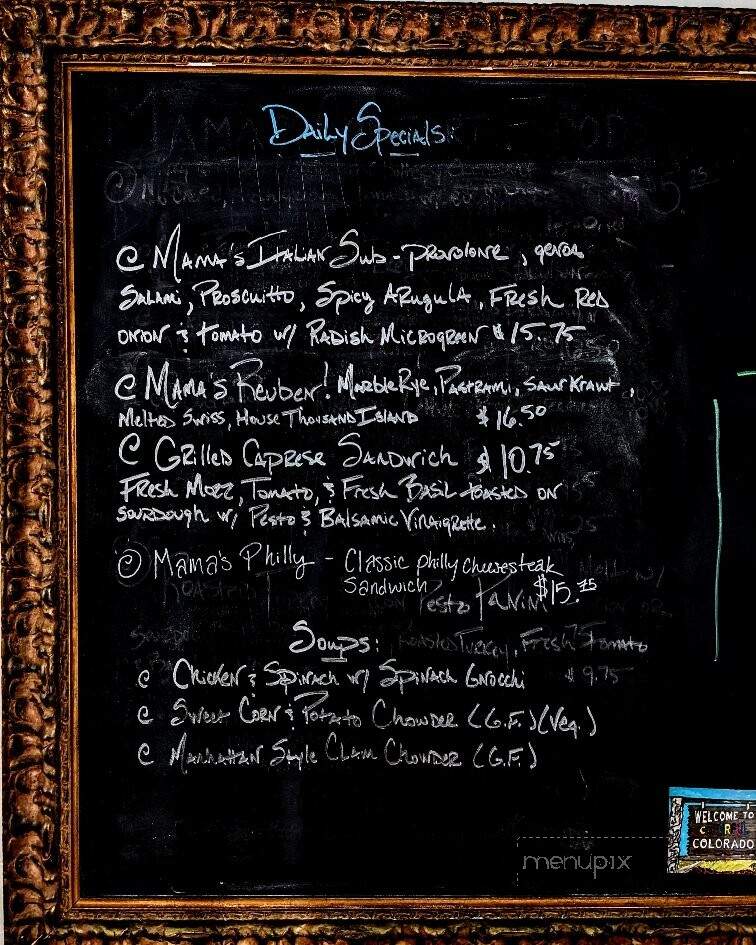 Daily Specials:
Mama's Italian Sub - Provolone, genoa
Salami, Proscuitto, Spicy Arugula, Fresh Red
onion & tomato w/ Radish Microgreen $15.75
Mama's Reuben! Marble Rye, Pastrami, Saur Kraut,
Melted Swiss, House Thousand Island $16.50
Grilled Caprese Sandwich $10.75
Fresh Mozz, Tomato, & Fresh Basil toasted on
Sourdough w/ Pesto & Balsamic Vinaigrette.
Mama's Philly - Classic philly cheesesteak
Sandwich $15.75
Pesto Panini
Soups: Roasted Turkey, Fresh Tomato
Chicken & Spinach w/ Spinach Gnocchi $9.75
Sweet Corn & Potato Chowder (G.F.) (Veg.)
Manhattan Style Clam Chowder (G.F.)
WELCOME TO
COLORADO
menupix